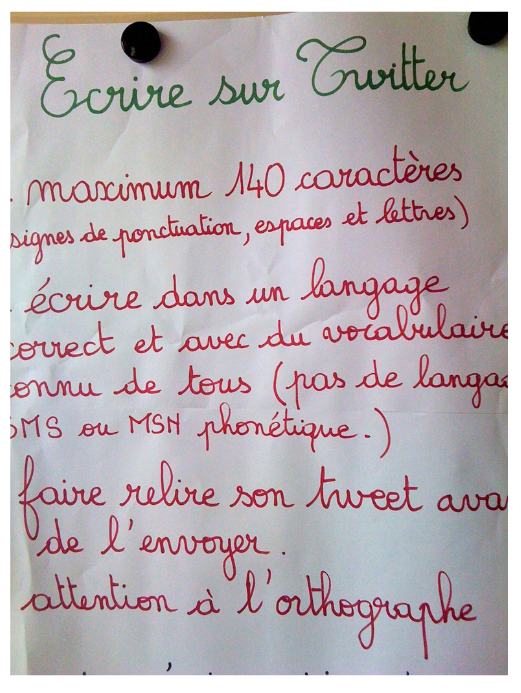 Écrire sur Twitter
. maximum 140 caractères
signes de ponctuation, espaces et lettres)
. écrire dans un langage
correct et avec du vocabulaire
connu de tous (pas de langa
SMS ou MSN phonétique.)
faire relire son tweet ava
de l'envoyer.
attention à l'orthographe